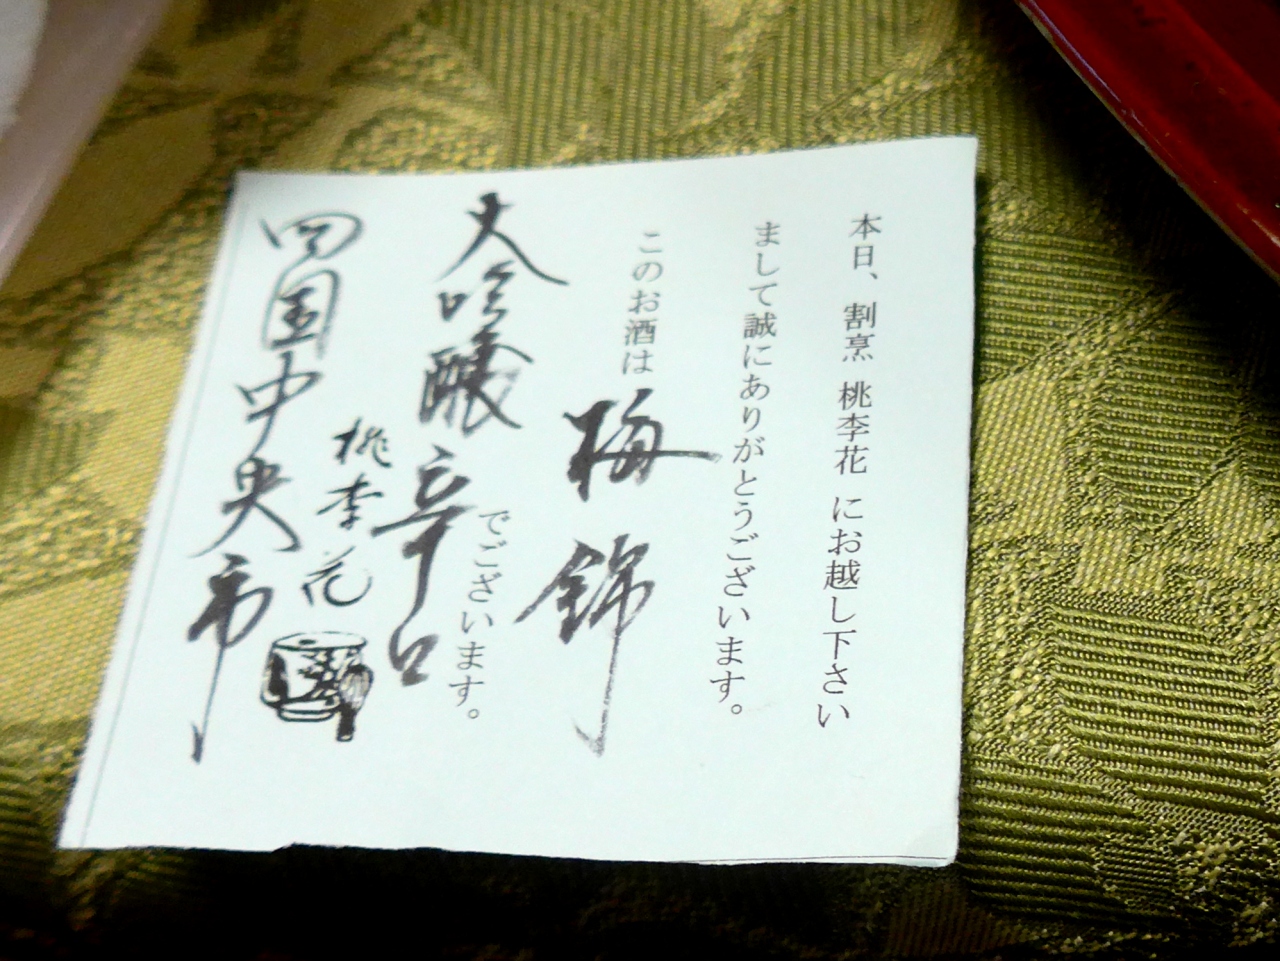 本日、割烹 桃李花 にお越し下さい
まして誠にありがとうございます。
このお酒は 梅錦
大吟醸 辛口 でございます。
桃李花
四国中央市